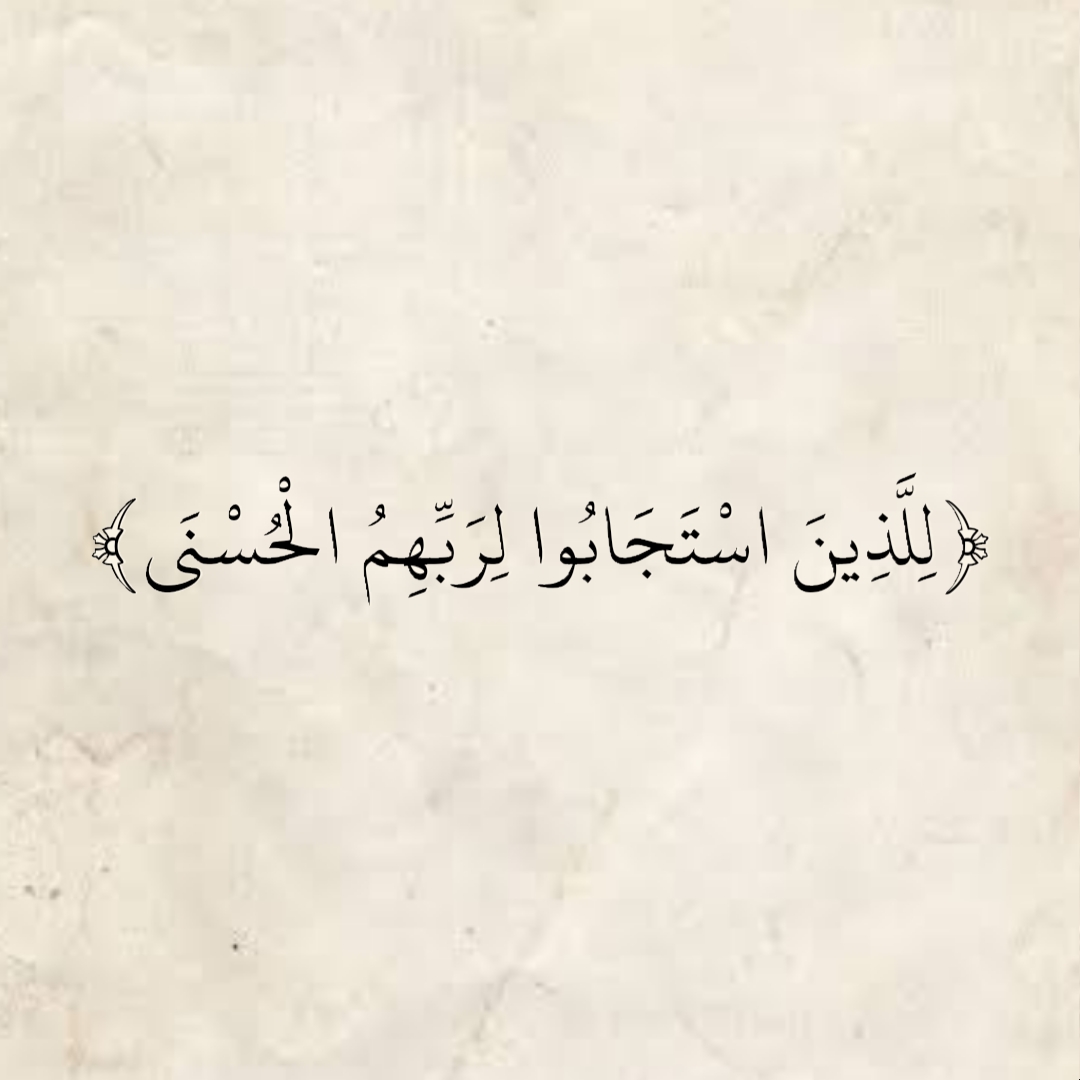 ﴿لِلَّذِينَ اسْتَجَابُوا لِرَبِّهِمُ الْحُسْنَى﴾